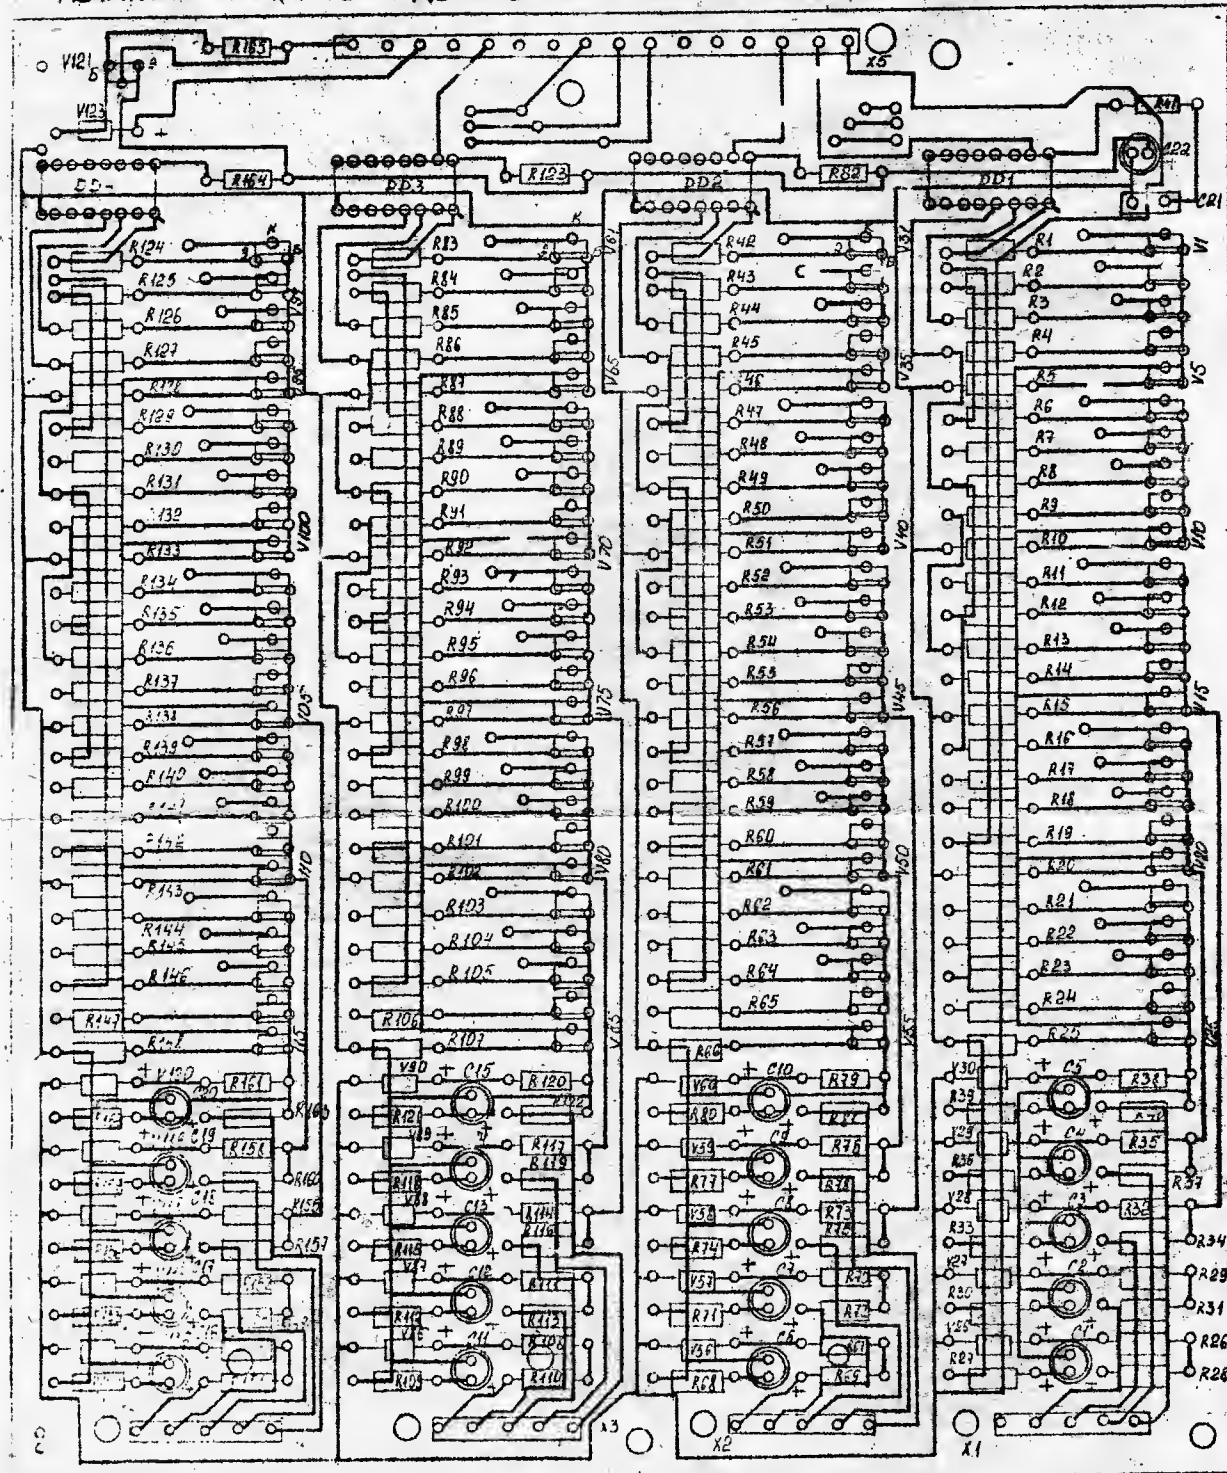 R163
X5
V121
Б
Э
V123
+
R41
C22
C21
R164
DD3
R123
DD2
R82
DD1
R124
R125
R126
R127
R128
R129
R130
R131
R133
R134
R135
R136
R137
R138
R139
R140
R143
R144
R145
R146
R147
R148
V100
R83
R84
R85
R86
R87
R88
R89
R90
R91
R92
R93
R94
R95
R96
R97
R98
R99
R100
R101
R102
R103
R104
R105
R106
R107
V61
V65
V70
V75
V80
R42
R43
R44
R45
R47
R48
R49
R50
R51
R52
R53
R54
R55
R56
R57
R58
R59
R60
R61
R62
R63
R64
R65
R66
V35
V40
V45
V50
V55
R1
R2
R3
R4
R5
R6
R7
R8
R9
R10
R11
R12
R13
R14
R15
R16
R17
R18
R19
R20
R21
R22
R23
R24
R25
V1
V5
V10
V15
V20
V25
V120
C20
R161
C19
R158
R160
R157
C17
V90
C15
R120
R121
R122
V89
R117
R119
R118
V88
C13
R114
R116
R115
V87
C12
R111
R112
R113
C11
R108
R109
R110
X3
V60
C10
R79
R80
R81
V59
C9
R76
R77
R78
V58
C8
R73
R74
R75
V57
C7
R70
R71
R72
V56
C6
R67
R68
R69
X2
V30
C5
R38
R39
R40
V29
C4
R35
R36
R37
V28
C3
R32
R33
R34
V27
C2
R29
R30
R31
C1
R26
R27
R28
X1